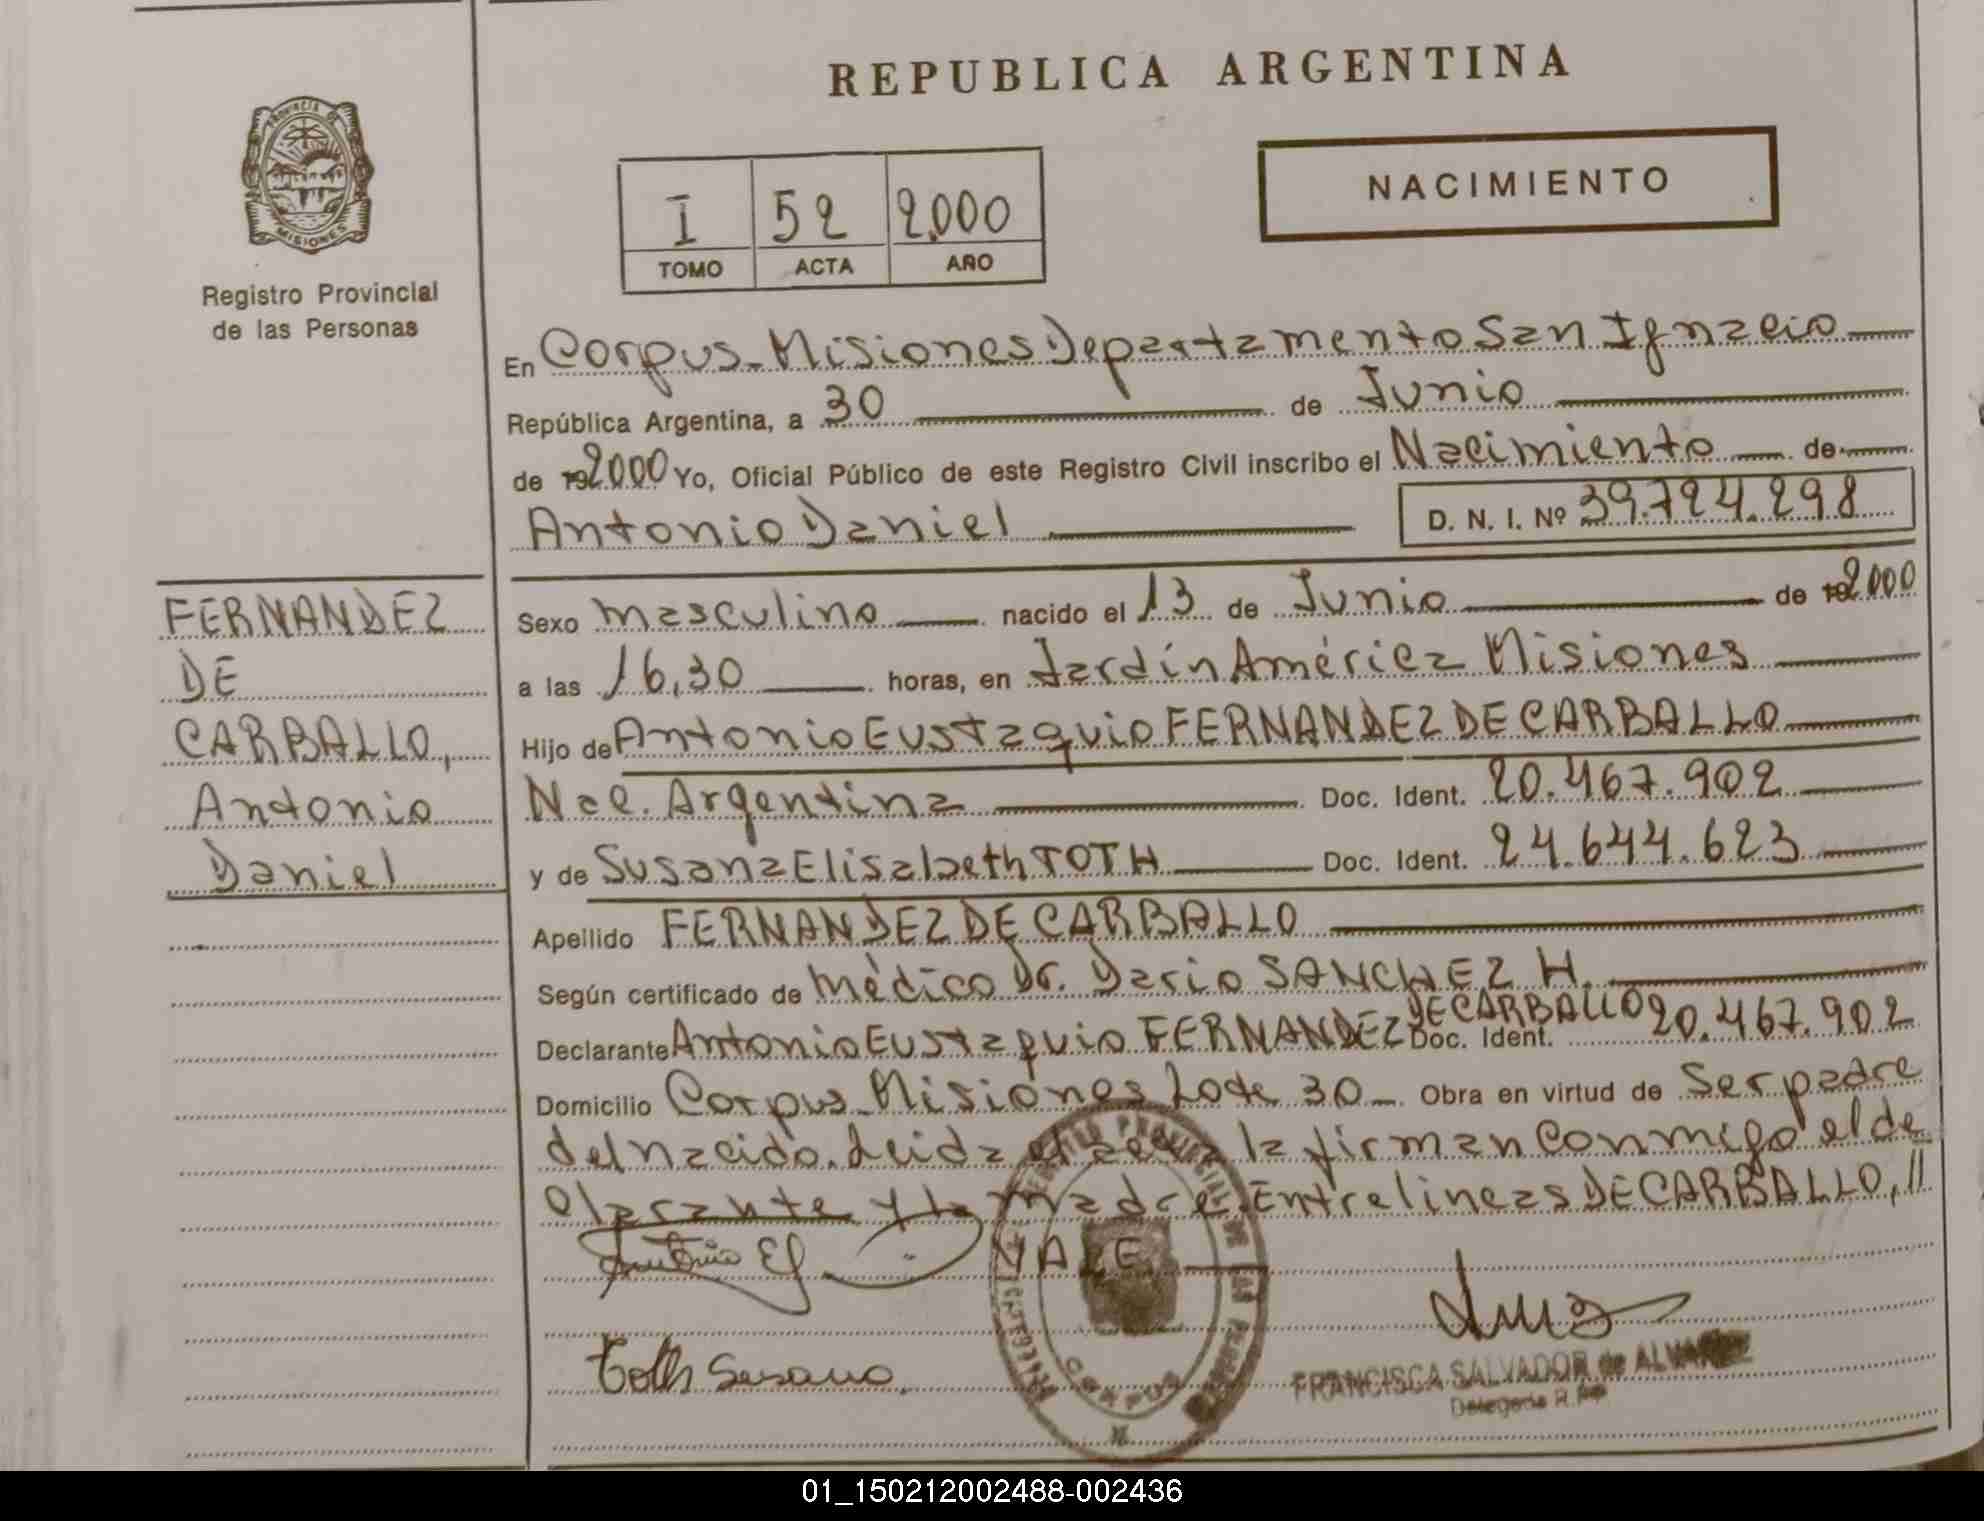 REPUBLICA ARGENTINA
PROVINCIA DE
MISIONES
Registro Provincial
de las Personas
I 52 2.000
TOMO ACTA AÑO
NACIMIENTO
En Corpus - Misiones Departamento San Ignacio
República Argentina, a 30 de Junio
de 19 2.000 Yo, Oficial Público de este Registro Civil inscribo el Nacimiento de
Antonio Daniel D. N. I. Nº 39.724.298
FERNANDEZ
DE
CARBALLO,
Antonio
Daniel
Sexo masculino nacido el 13 de Junio de 19 2000
a las 16,30 horas, en Jardín América Misiones
Hijo de Antonio Eustaquio FERNANDEZ DE CARBALLO
Nac. Argentina Doc. Ident. 20.467.902
y de Susana Elisabeth TOTH Doc. Ident. 24.644.623
Apellido FERNANDEZ DE CARBALLO
Según certificado de médico Dr. Dario SANCHEZ H.
Declarante Antonio Eustaquio FERNANDEZ DE CARBALLO Doc. Ident. 20.467.902
Domicilio Corpus - Misiones Lote 30 - Obra en virtud de Ser padre
del nacido. Leida el acta la firman conmigo el de
clarante y la madre. Entrelineas DE CARBALLO, //
VALE
Antonio
Toth Susana.
CORPUS
FRANCISCA SALVADOR de ALVAREZ
Delegada R.P.P.
01_150212002488-002436